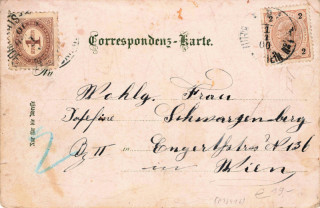 Correspondenz-Karte.
An
Nur für die Adresse
Wohlg. Frau
Josefine Schwarzenberg
Bz II Engerthstr. N 136
in Wien
2
2
2
2
4